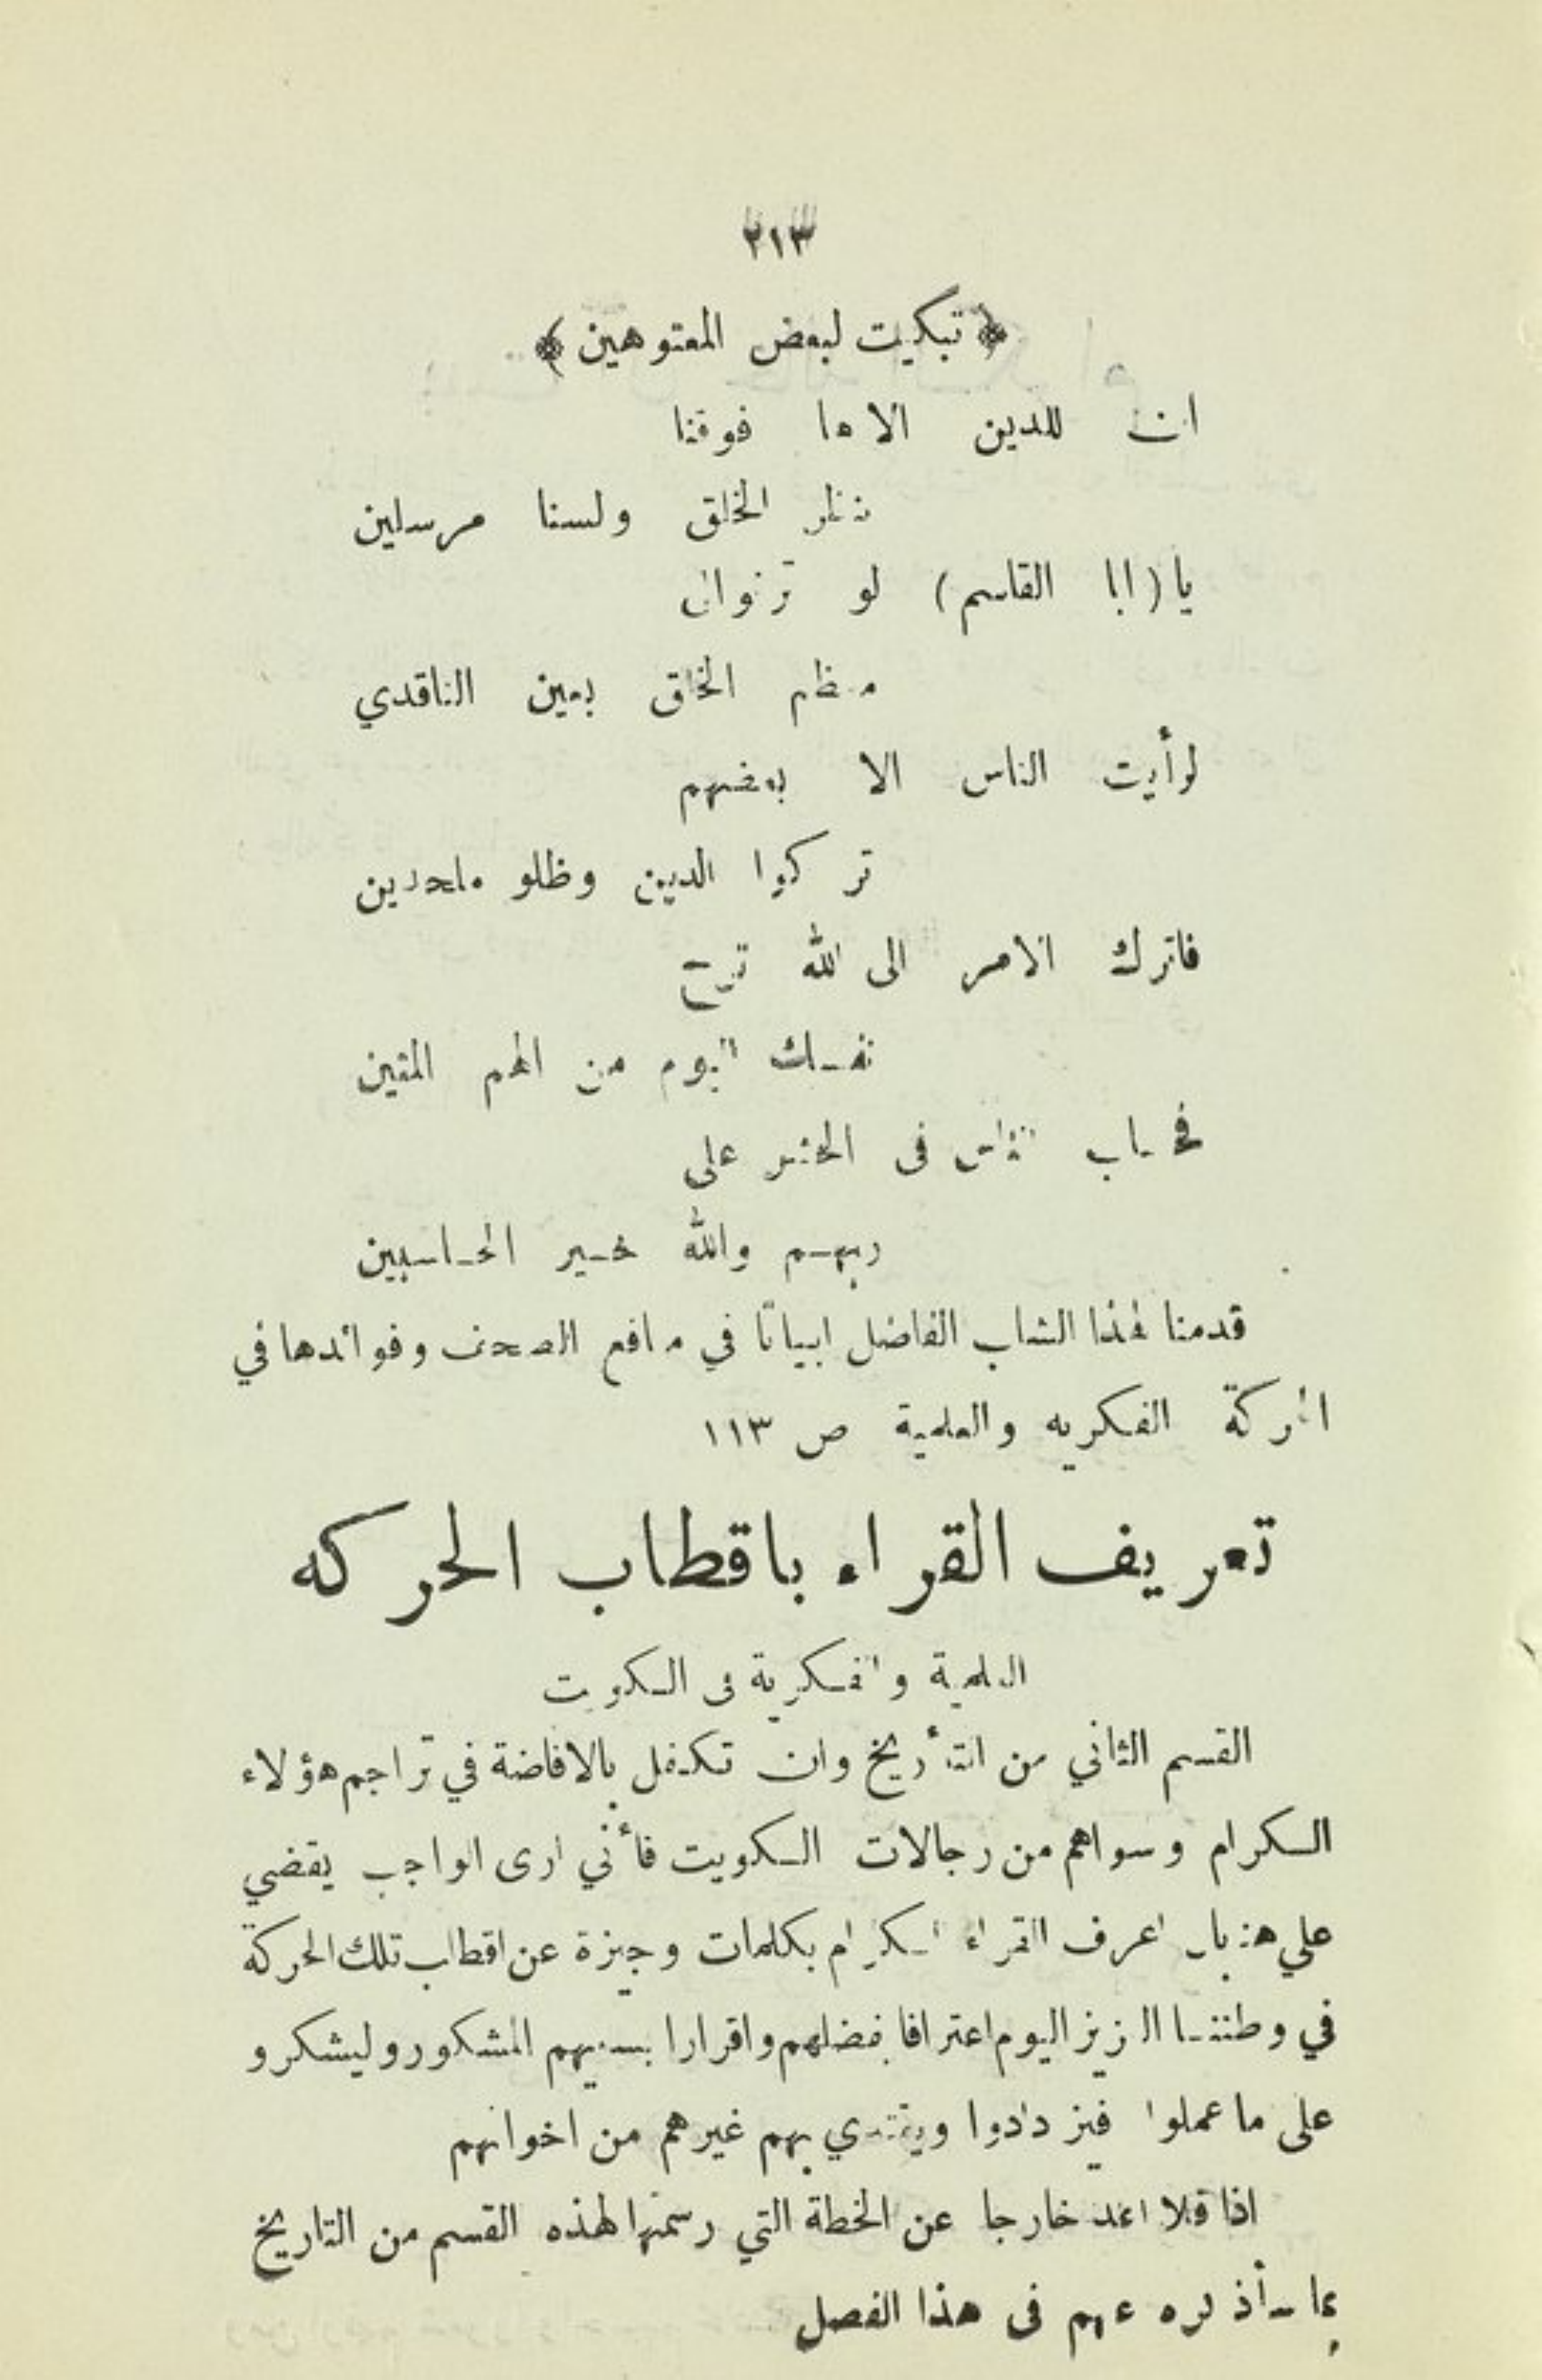 ٢١٣
﴿ تبكيت لبعض المعتوهين ﴾
ان للدين الاها فوقنا
نظر الخلق ولسنا مرسلين
يا (ابا القاسم) لو ترنوالى
معظم الخلق بعين الناقدي
لرأيت الناس الا بعضهم
تركوا الدين وظلو ملحدين
فاترك الامر الى الله ترح
نفسك اليوم من الهم المتين
فحساب الناس فى الحشر على
ربهم والله خير الحاسبين
قدمنا لهذا الشاب الفاضل ابياتا في منافع الصحف وفوائدها في
الحركة الفكريه والعلمية ص ١١٣
تعريف القراء باقطاب الحركه
العلمية والفكرية فى الكويت
القسم الثاني من التأريخ وان تكفل بالافاضة في تراجم هؤلاء
الكرام وسواهم من رجالات الكويت فأنني ارى الواجب يقضي
علي هنا بان اعرف القراء الكرام بكلمات وجيزة عن اقطاب تلك الحركة
في وطننا العزيز اليوم اعترافا بفضلهم واقرارا بسعيهم المشكور وليشكرو
على ما عملوا فيزدادوا ويقتدي بهم غيرهم من اخوانهم
اذا فلا اعد خارجا عن الخطة التي رسمتها لهذه القسم من التاريخ
بما سأذكره عنهم فى هذا الفصل